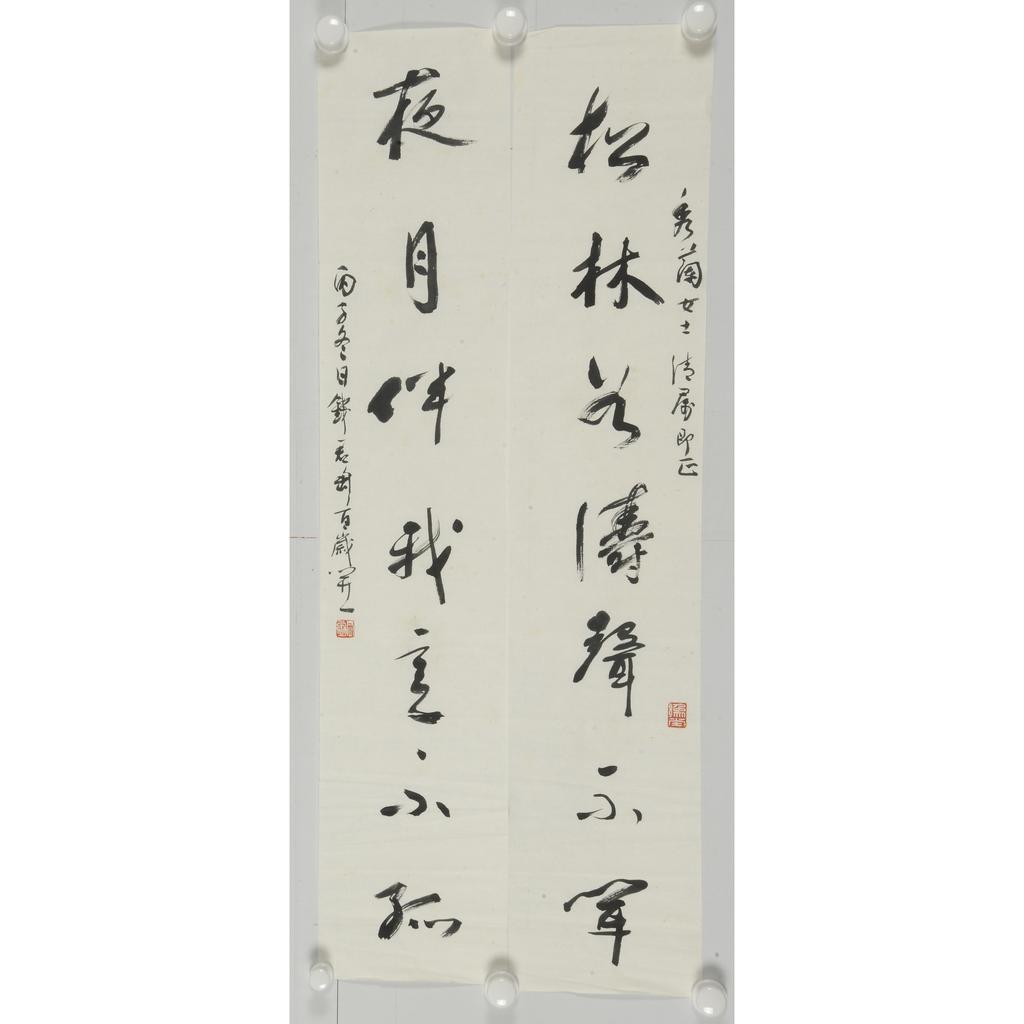 秀蘭女士 清屬即正
松林若濤聲不
夜月伴我意不孤
丙子冬日錢君匋百歲開一